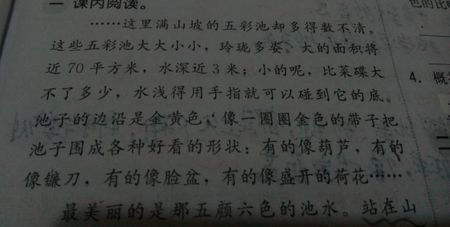 一 课内阅读。
……这里满山坡的五彩池却多得数不清。
这些五彩池大大小小，玲珑多姿。大的面积将
近70平方米，水深近3米；小的呢，比菜碟大
不了多少，水浅得用手指就可以碰到它的底。
池子的边沿是金黄色，像一圈圈金色的带子把
池子围成各种好看的形状：有的像葫芦，有的
像镰刀，有的像脸盆，有的像盛开的荷花……
最美丽的是那五颜六色的池水。站在山
色的比
4. 概